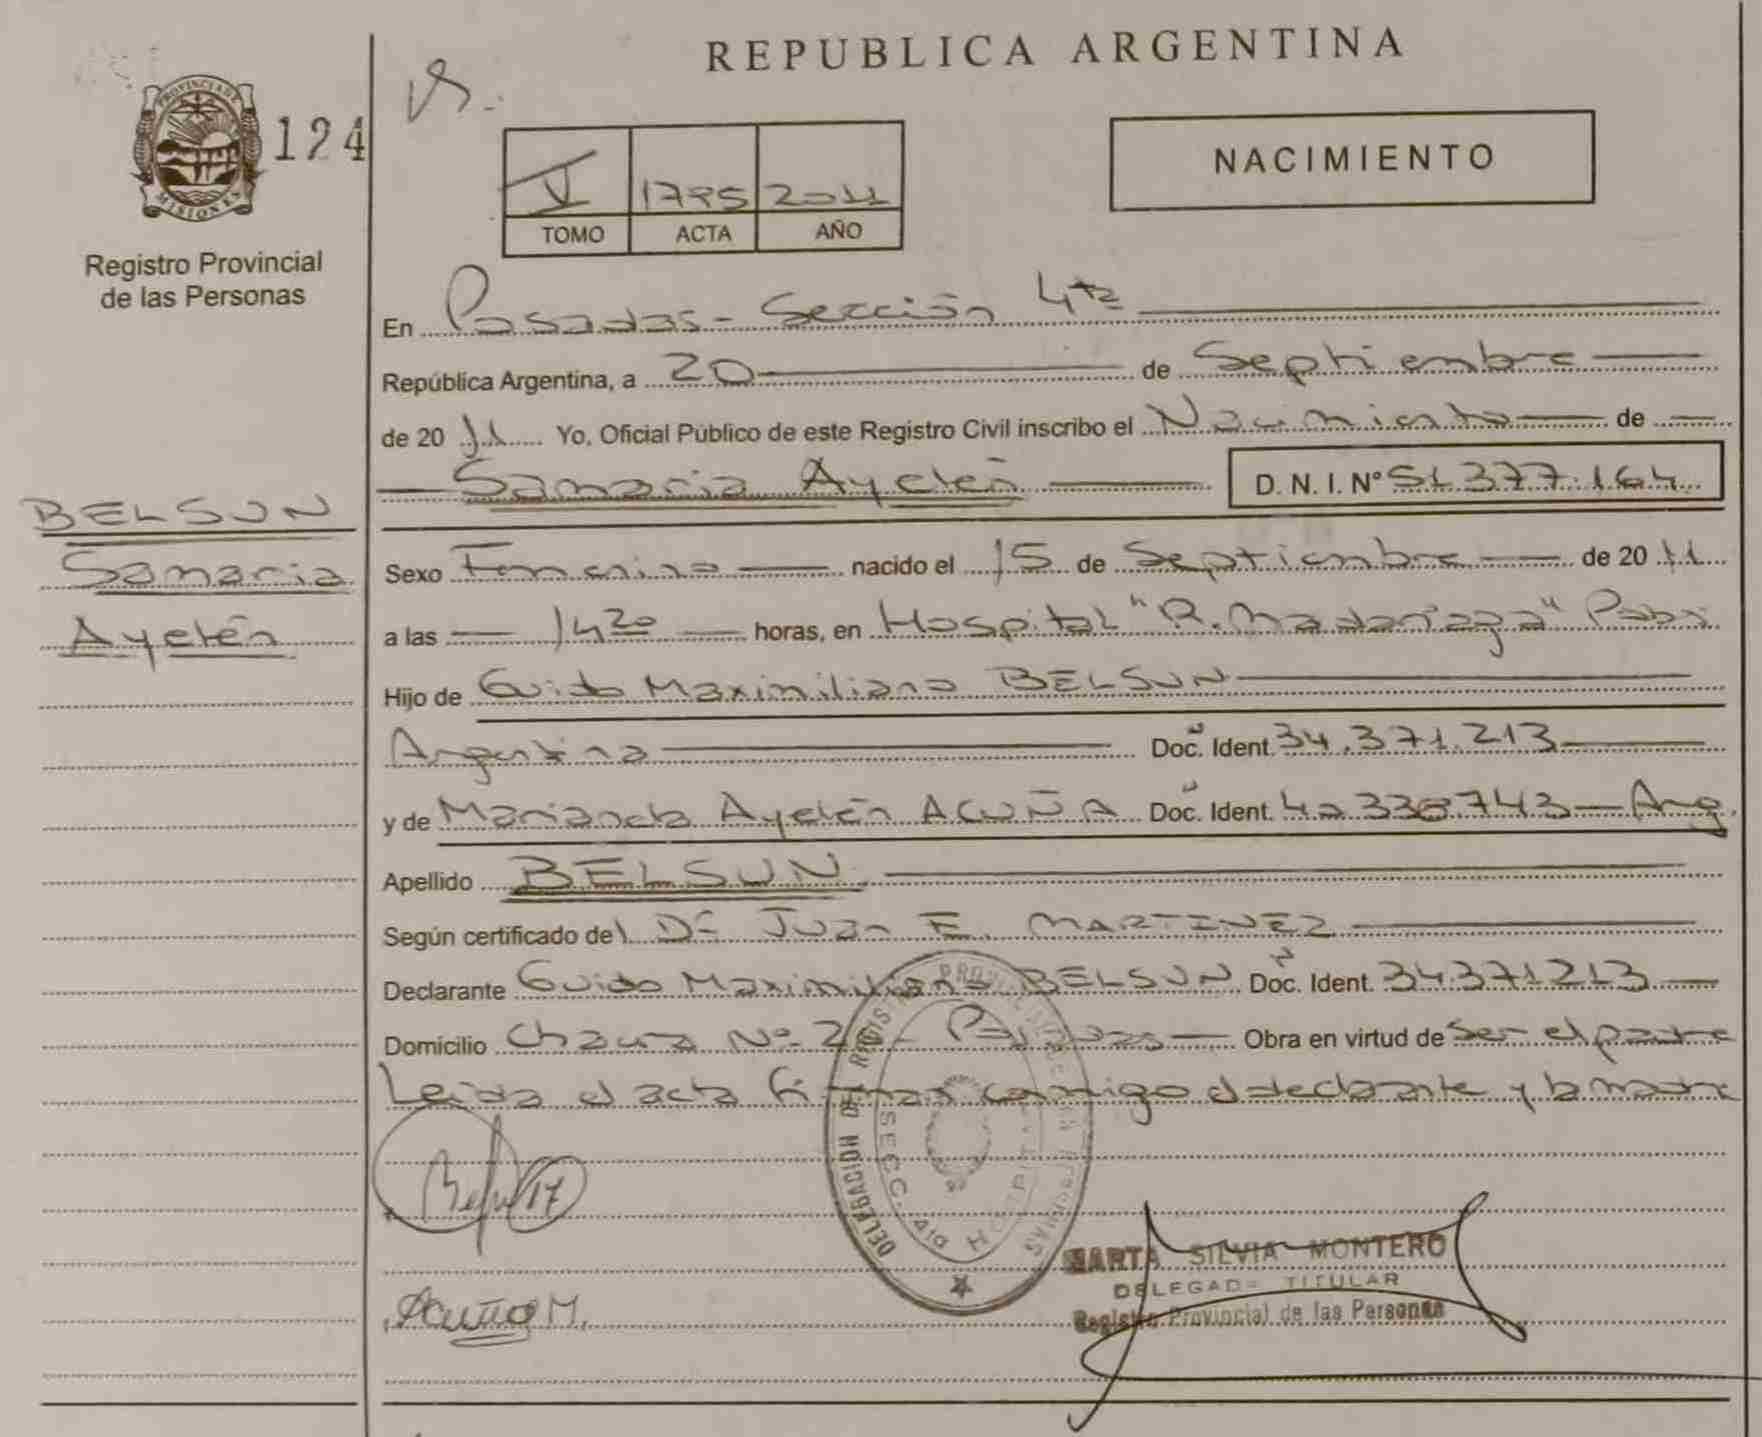 REPUBLICA ARGENTINA
PROVINCIA DE
MISIONES
124
Registro Provincial
de las Personas
V 1785 2011
TOMO ACTA AÑO
NACIMIENTO
En Posadas - Sección 4ta
República Argentina, a 20 de Septiembre
de 20 11 Yo, Oficial Público de este Registro Civil inscribo el Nacimiento de
Samaria Ayelén D. N. I. Nº 51.377.164
BELSUN
Samaria
Ayelén
Sexo Femenino nacido el 15 de Septiembre de 20 11
a las 14 20 horas, en Hospital "R. Madariaga"
Hijo de Guido Maximiliano BELSUN
Argentina Doc. Ident. 34.371.213
y de Ayelén ACUÑA Doc. Ident. Arg.
Apellido BELSUN
Según certificado del Dr Juan E. MARTINEZ
Declarante Guido Maximiliano BELSUN Doc. Ident. 34.371.213
Domicilio Chacra Nº Posadas Obra en virtud de Ser el padre
Leida el acta firman conmigo el declarante y la madre
DELEGACION DEL REGISTRO
SECC. 4ta
Acuña M.
MARTA SILVIA MONTERO
DELEGADA TITULAR
Registro Provincial de las Personas